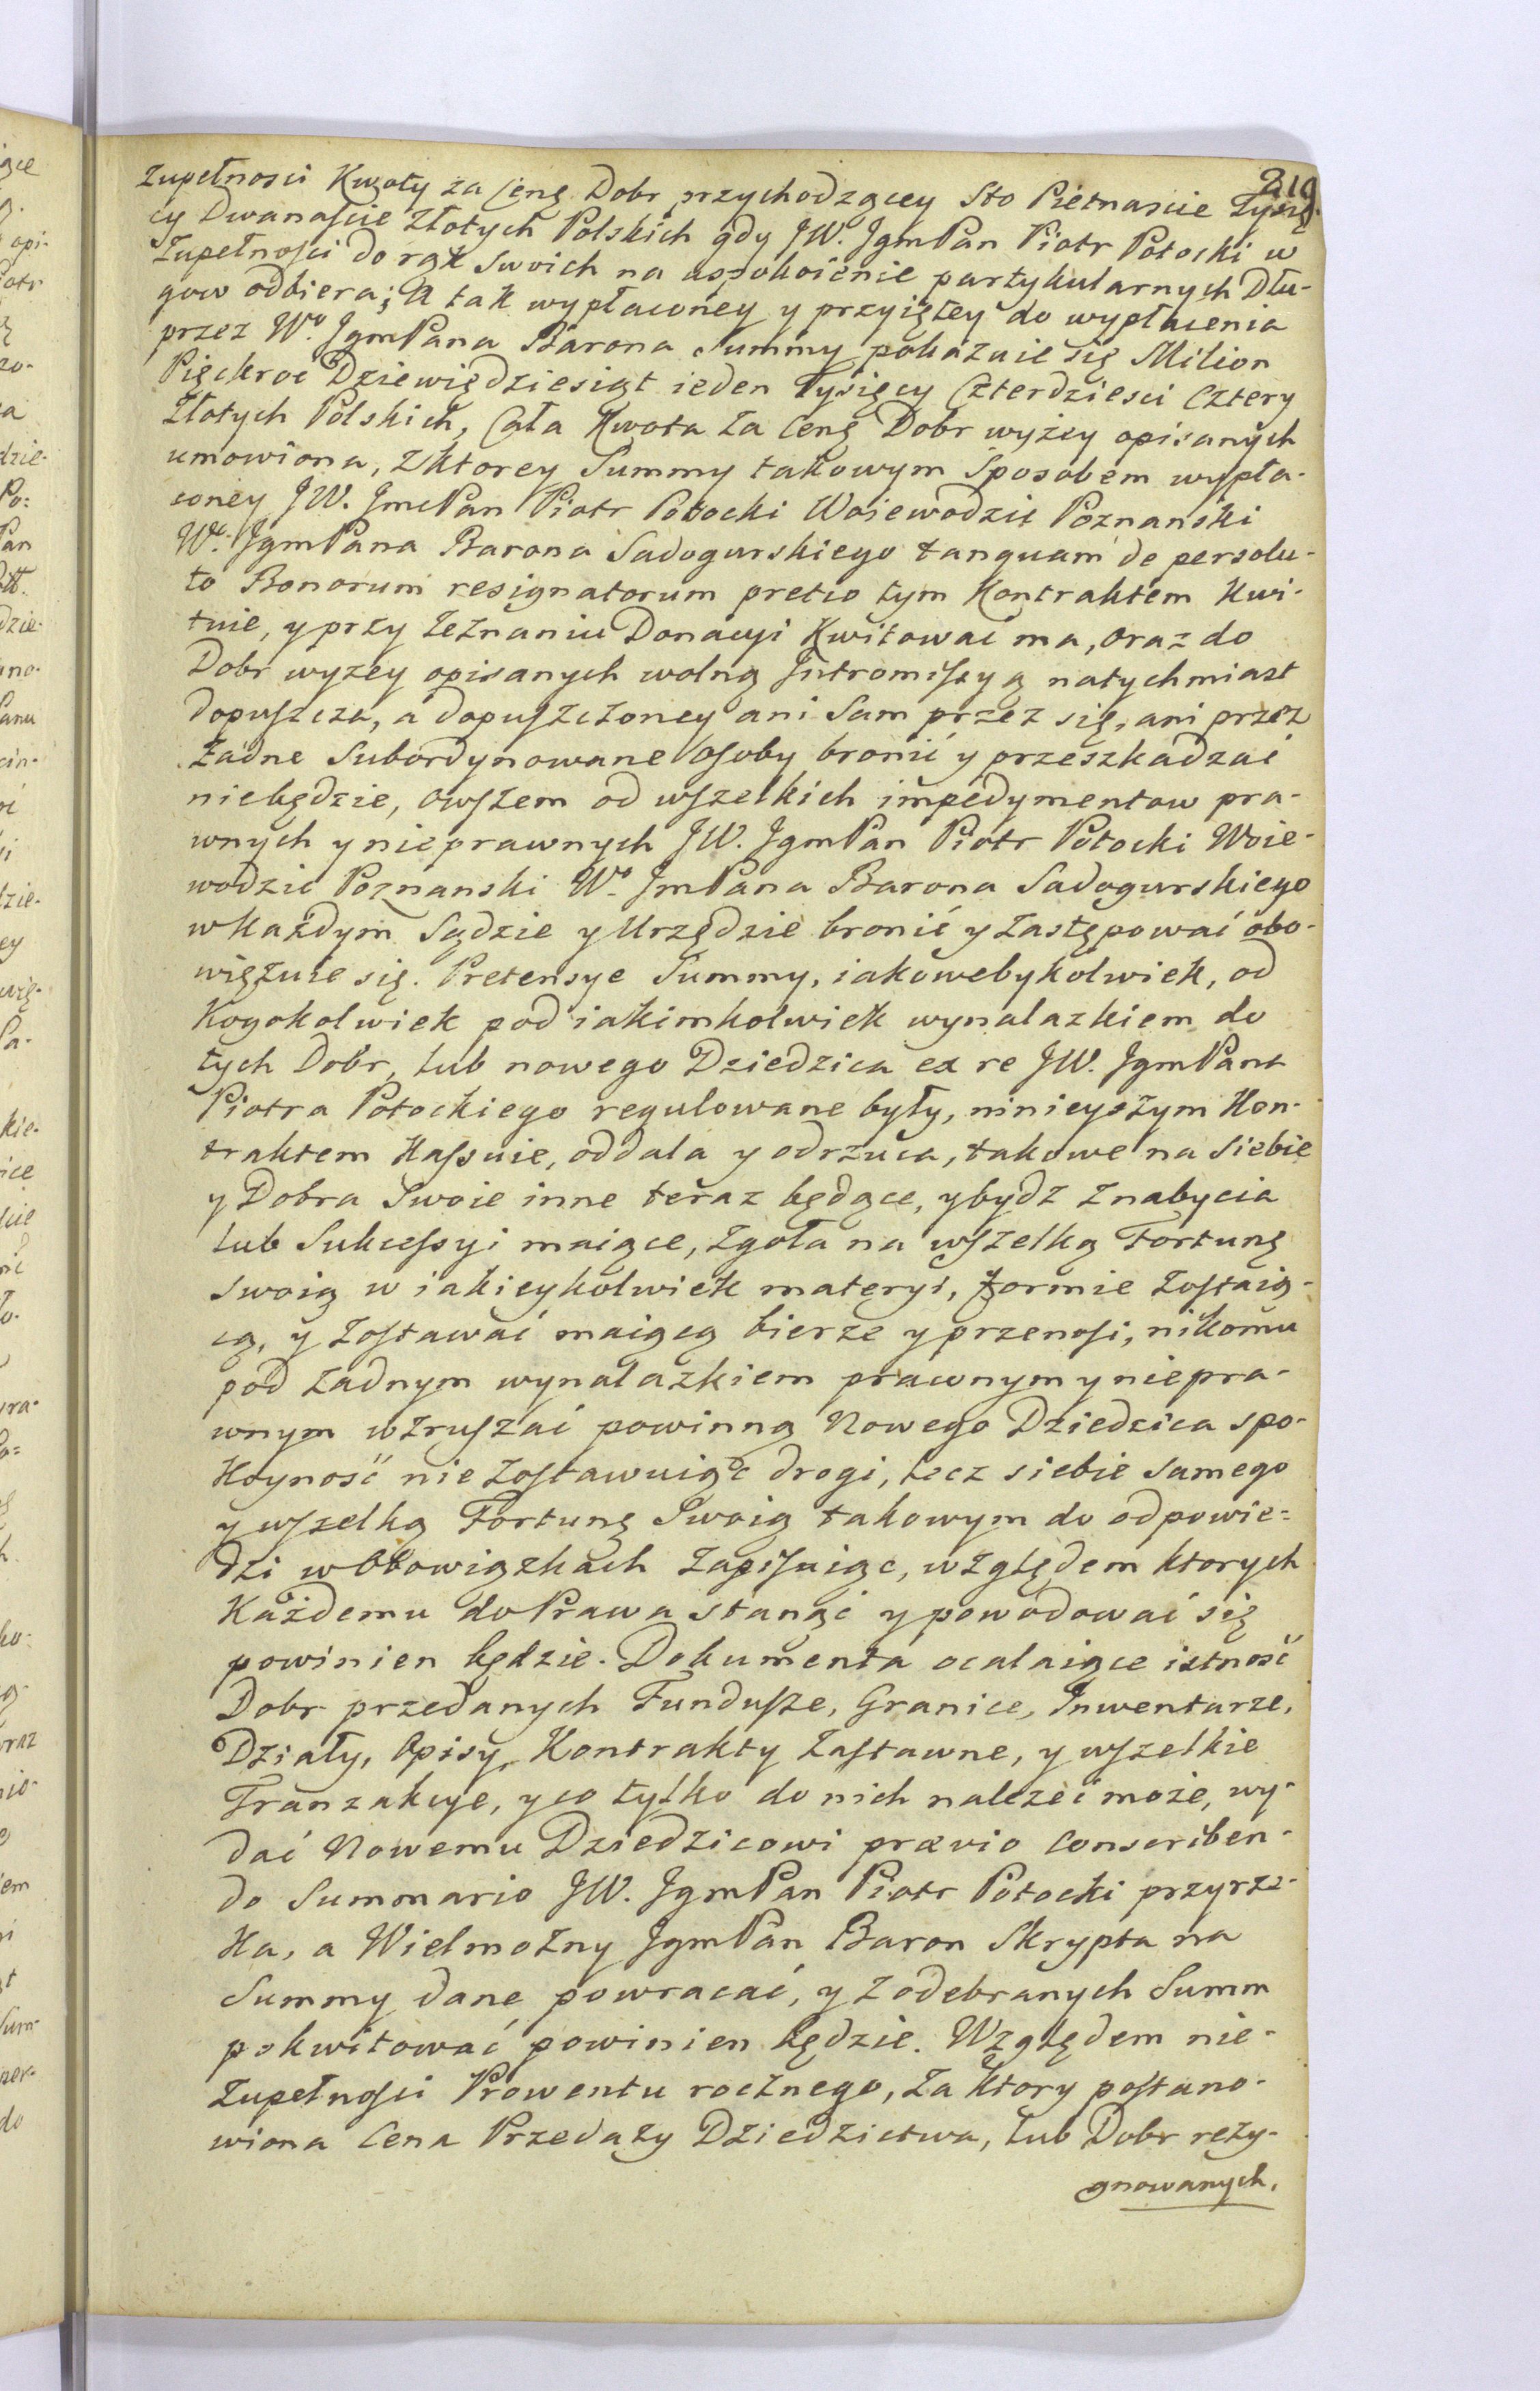 219
Zupełnosci Kwoty za Cenę Dobr przychodzącey Sto Pietnascie Tysię-
cy Dwanaście Złotych Polskich gdy JW. JgmPan Piotr Potocki w
Zupełności do rąk swoich na uspokoienie partykularnych Dłu-
gow odbiera; A tak wypłaconey y przyiętey do wypłacenia
przez Wo. JgmPana Barona Summy pokazuie się Milion
Pięckroć Dziewiędziesiąt ieden Tysięcy Czterdziesci Cztery
Złotych Polskich, Cała Kwota za Cenę Dobr wyżey opisanych
umowiona, z ktorey Summy takowym Sposobem wypła-
coney JW. JmcPan Piotr Potocki Woiewodzic Poznanski
Wo. JgmPana Barona Sadogurskiego tanquam de persolu-
to Bonorum resignatorum pretio tym Kontraktem Kwi-
tuie, y przy Zeznaniu Donacyi Kwitować ma, oraz do
Dobr wyzey opisanych wolną Intromissyą natychmiast
dopuszcza, a dopuszczoney ani Sam przez się, ani przez
Żadne Subordynowane Osoby bronić y przeszkadzać
niebędzie, owszem od wszelkich impedymentow pra-
wnych y nieprawnych JW. JgmPan Piotr Potocki Woie-
wodzic Poznanski Wo. JmPana Barona Sadogurskiego
w Każdym Sądzie y Urzędzie bronić y Zastępować obo-
więzuie się. Pretensye Summy, iakowebykolwiek, od
Kogokolwiek pod iakimkolwiek wynalazkiem do
tych Dobr, lub nowego Dziedzica ex re JW. JgmPana
Piotra Potockiego regulowane były, ninieyszym Kon-
traktem Kassuie, oddala y odrzuca, takowe na Siebie
y Dobra Swoie inne teraz będące, y bydz z nabycia
lub Sukcessyi maiące, Zgoła na wszelką Fortunę
Swoią w iakieykolwiek materyi, formie Zostaią-
cą, y Zostawać maiącą bierze y przenosi, nikomu
pod Żadnym wynalazkiem prawnym y niepra-
wnym wzruszać powinną Nowego Dziedzica spo-
Koyność nie Zostawuiąc drogi, lecz siebie samego
y wszelką Fortunę Swoią takowym do odpowie-
dzi w Obowiązkach Zapisuiąc, względem ktorych
Każdemu do Prawa stanąć y powodować się
powinien będzie. Dokumenta ocalaiące istność
Dobr przedanych Fundusze, Granice, Inwentarze,
Działy, Opisy, Kontrakty Zastawne, y wszelkie
Tranzakcye, y co tylko do nich należeć może, wy-
dać Nowemu Dziedzicowi prævio Conscriben-
do Summario JW. JgmPan Piotr Potocki przyrze-
Ka, a Wielmożny JgmPan Baron Skrypta na
Summy dane powracać, y z odebranych Summ
pokwitować powinien będzie. Względem nie-
Zupełności Prowentu rocznego, za Ktory postano-
wiona Cena Przedaży Dziedzictwa, lub Dobr rezy-
gnowanych.